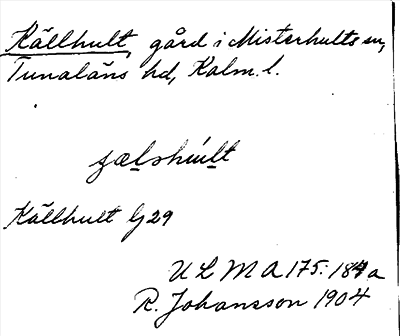 Källhult, gård i Misterhults sn,
Tunaläns hd, Kalm. l.
Källhult Lj 29
U L M A 175: 184 a
R. Johansson 1904